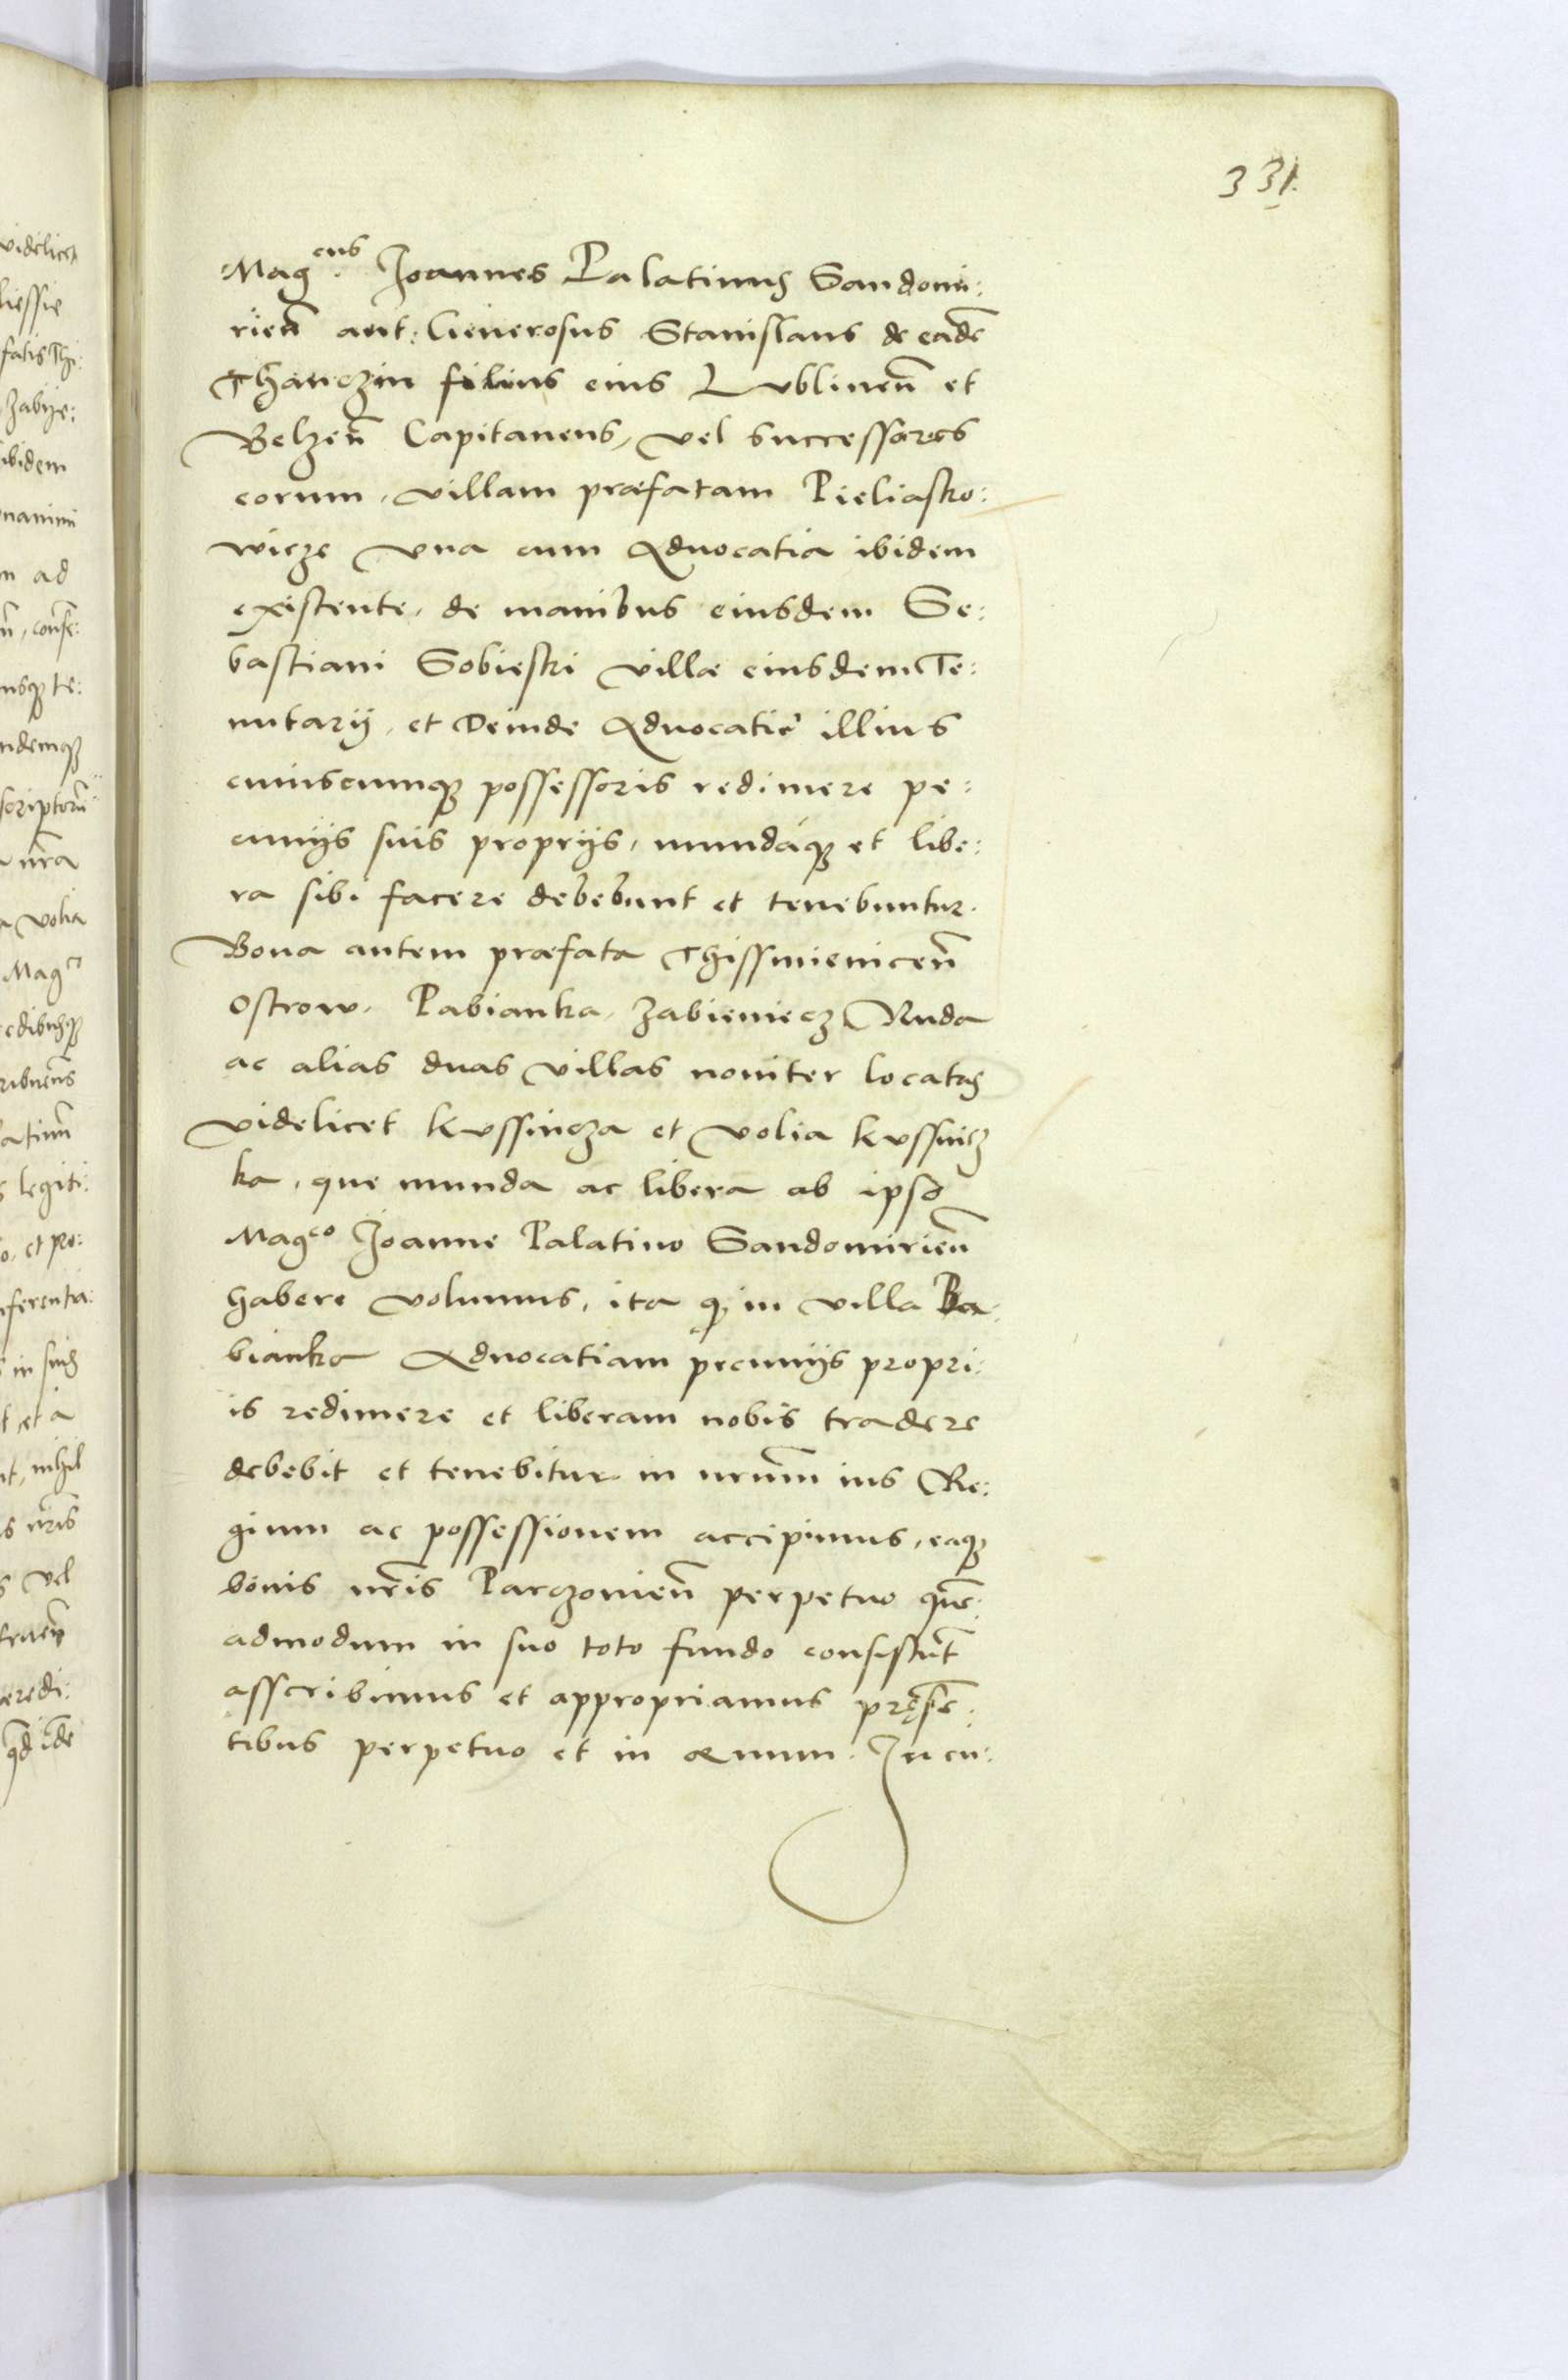 331.
Mag.cus Joannes Palatinus Sandomi:
rien̄ aut: Generosus Stanislaus de eadē
Thanczin filius eius Lublinen̄ et
Belzen̄ Capitaneus, vel successores
eorum, villam præfatam Pieliasko:
wicze vna cum Aduocatia ibidem
existente, de manibus eiusdem Se:
bastiani Sobieski villæ eiusdem Te:
nutarij, et Deinde Aduocatiæ illius
cuiuscumqȝ possessoris redimere pe:
cunijs suis proprijs, mundáqȝ et libe:
ra sibi facere debebunt et tenebuntur.
Bona autem præfata Thissmienicen̄
Ostrow, Pabianka, Zabieniecz Ruda
ac alias duas villas nouiter locatas
videlicet Kussincza et Volia Kussnicz
ka, que munda ac libera ab ipso
Mag.co Joanne Palatino Sandomirien̄
habere volumus, ita qȝ in villa Ba:
bianka Aduocatiam pecunijs propri:
is redimere et liberam nobis tradere
debebit et tenebitur in nrum̄ ius Re:
gium ac possessionem accipimus, eaqȝ
bonis nr̄is Parczouien̄ perpetuo quē:
admodum in suo toto fundo consistūt
asscribimus et appropriamus pręsē:
tibus perpetuo et in æuum. In cu:
videlicet
liessie
fatis Thi:
Zabye:
ibidem
nanimi
m ad
usqȝ te:
ndemqȝ
scriptorū
nr̄a
Volia
Mag.co
edibusqȝ
legiti:
et pro:
in suis
t, et à
nt, nihil
nr̄is
vel
eredi: